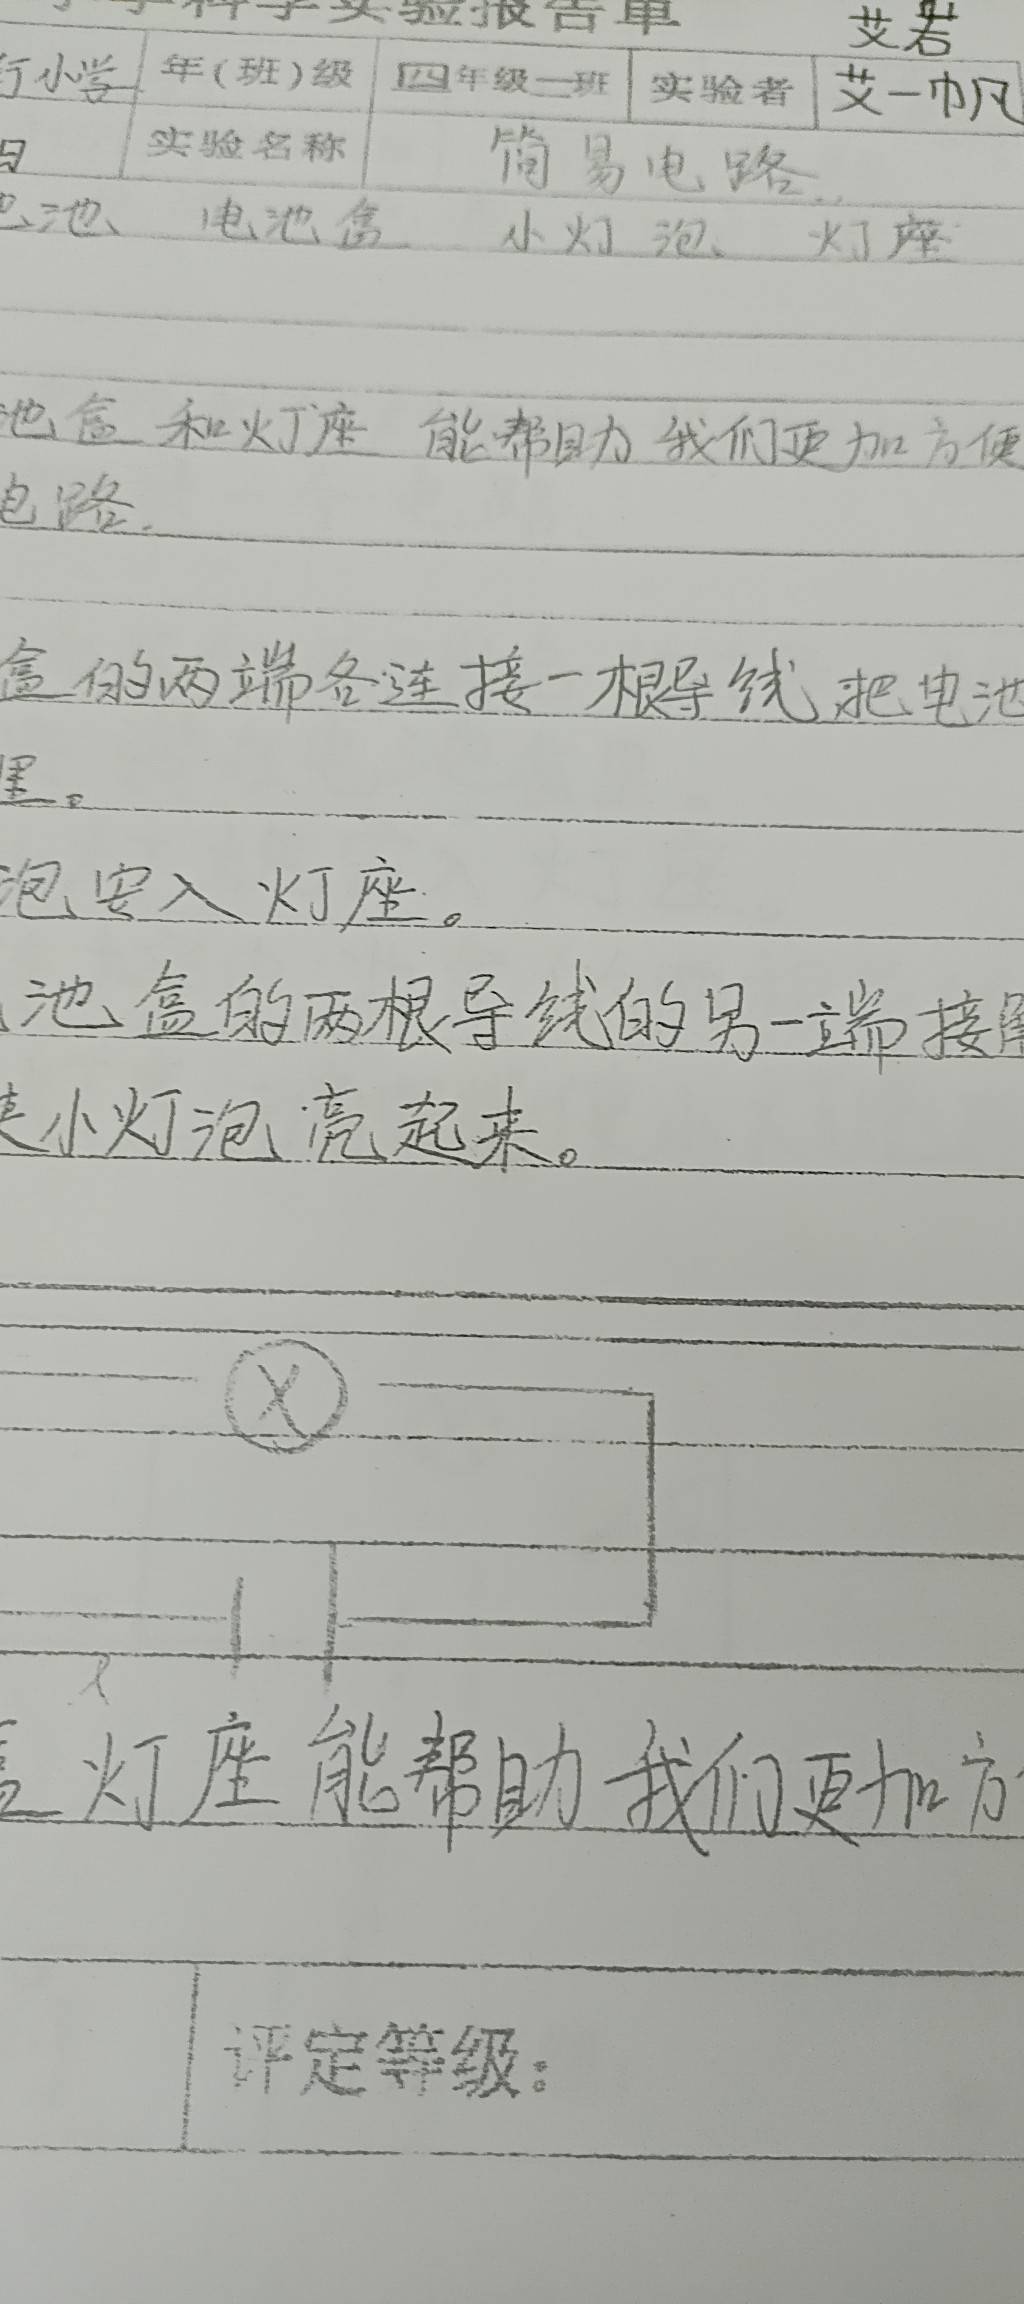 小学科学实验报告单
艾若
行小学 年(班)级 四年级一班 实验者 艾一帆
日 实验名称 简易电路
电池 电池盒 小灯泡 灯座
池盒和灯座 能帮助我们更加方便
电路.
盒的两端各连接一根导线,把电池
里。
泡安入灯座。
池盒的两根导线的另一端接触
使小灯泡亮起来。
盒灯座能帮助我们更加方
评定等级: